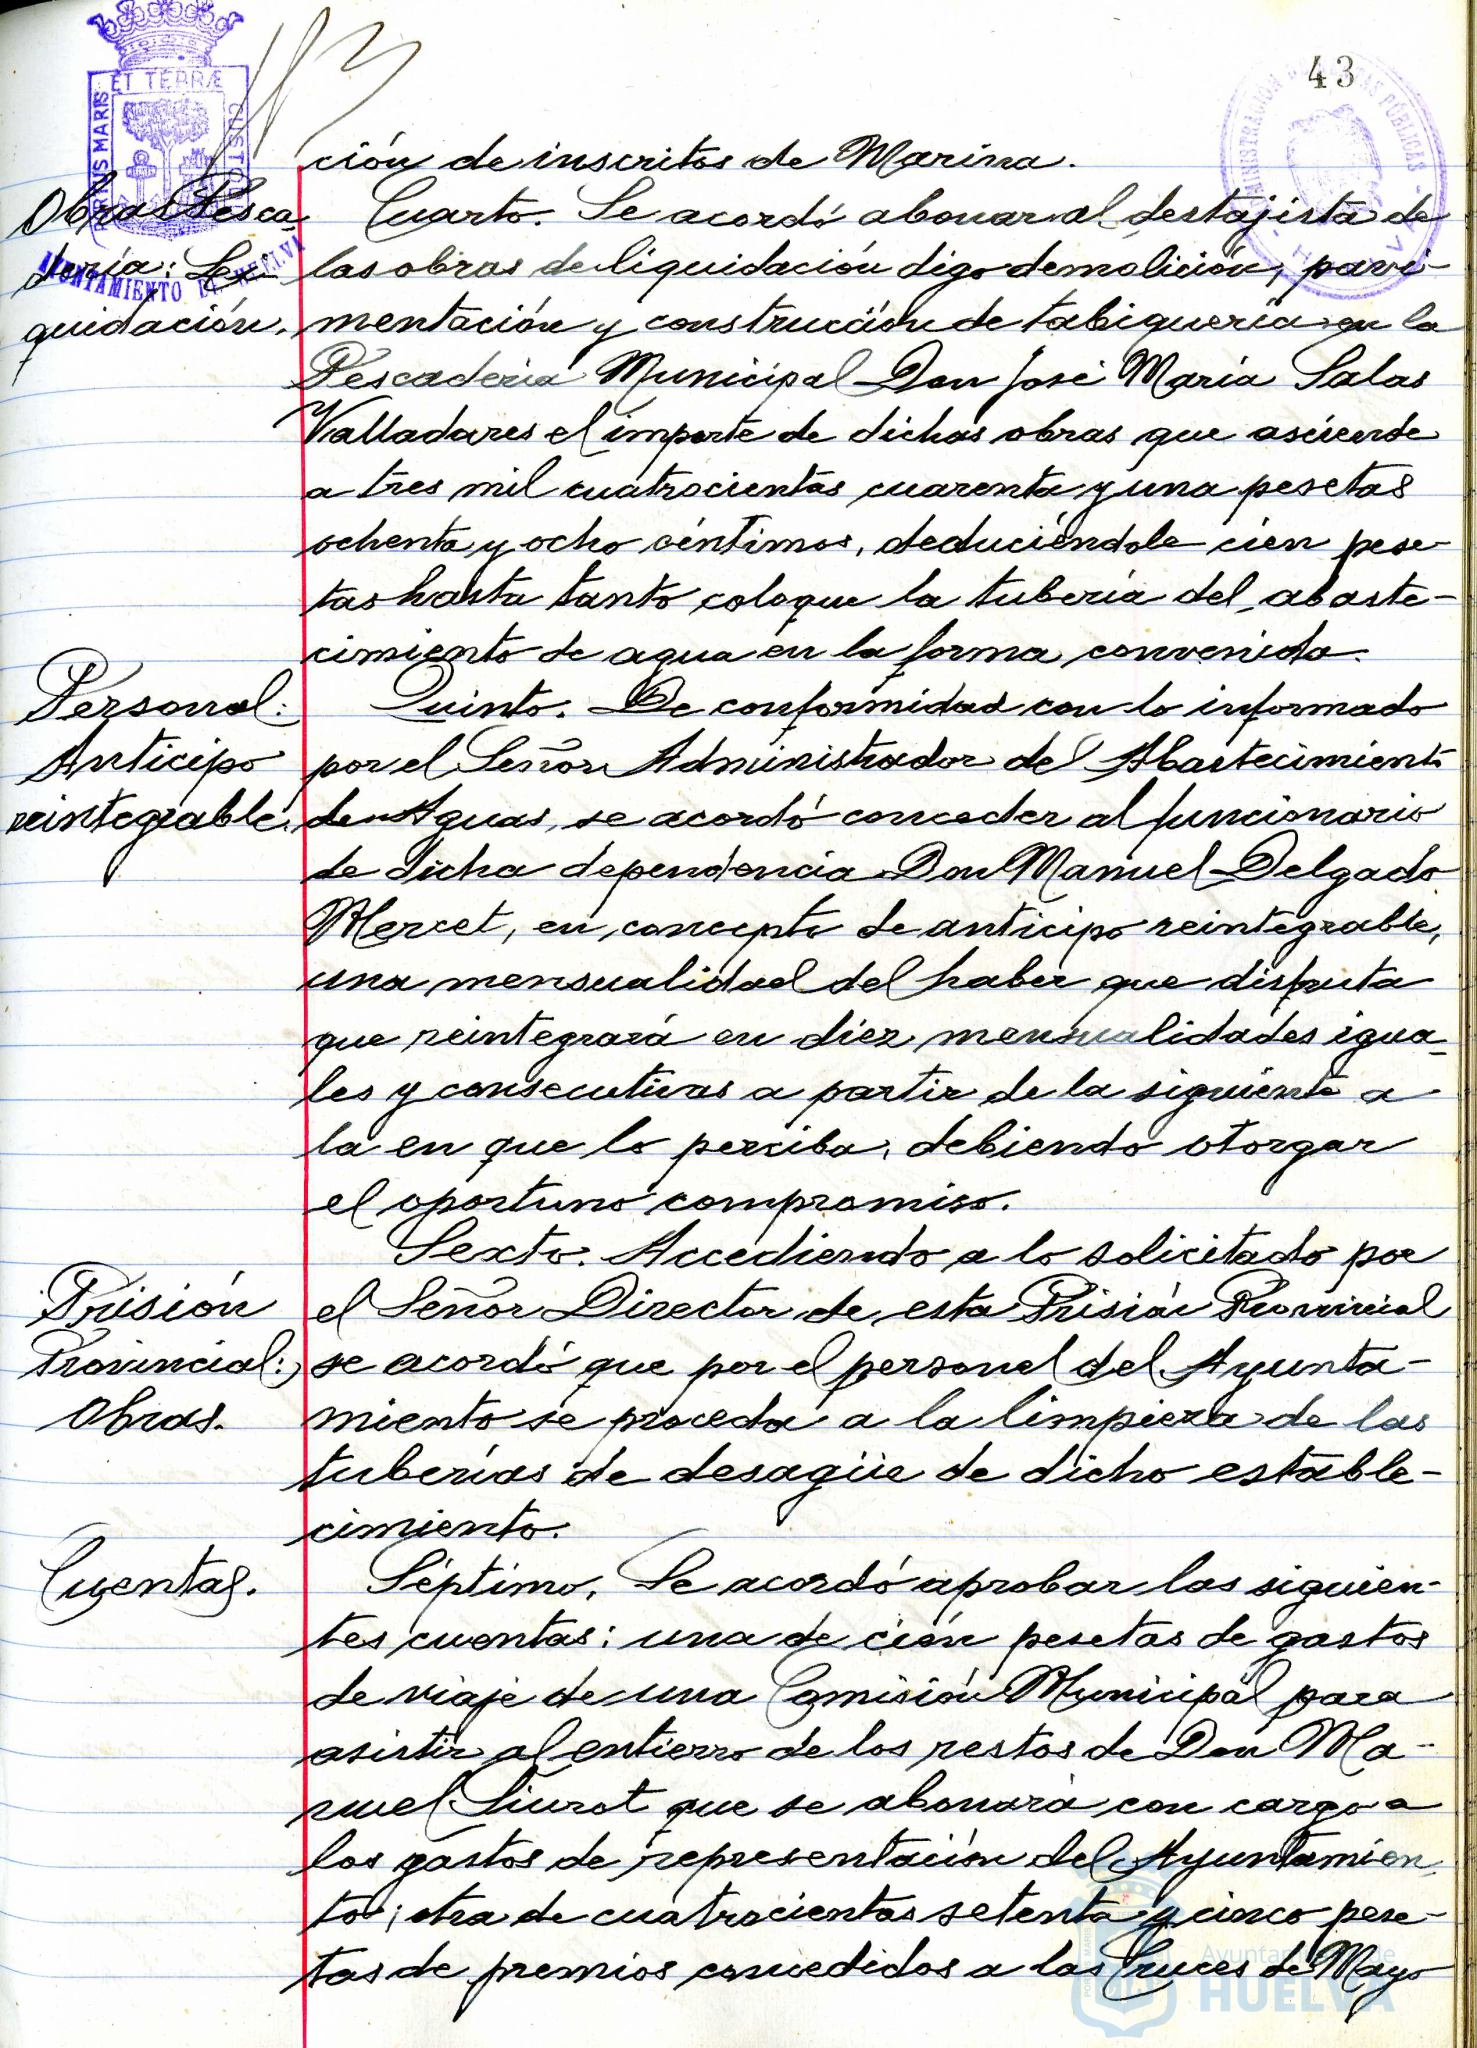 43
PORTUS MARIS ET TERRÆ CUSTODIA
AYUNTAMIENTO DE HUELVA
ción de inscritos de Marina.
Obras Pesca-
dería: Li-
quidación.
Cuarto. Se acordó abonar al destajista de
las obras de liquidación digo demolición, pavi-
mentación y construcción de tabiquería en la
Pescadería Municipal Don José María Salas
Valladares el importe de dichas obras que asciende
a tres mil cuatrocientas cuarenta y una pesetas
ochenta y ocho céntimos, deduciéndole cien pese-
tas hasta tanto coloque la tubería del abaste-
cimiento de agua en la forma convenida.
Personal:
Anticipo
reintegrable.
Quinto. De conformidad con lo informado
por el Señor Administrador del Abastecimiento
de Aguas, se acordó conceder al funcionario
de dicha dependencia Don Manuel Delgado
Mercet, en concepto de anticipo reintegrable,
una mensualidad del haber que disfruta
que reintegrará en diez mensualidades igua-
les y consecutivas a partir de la siguiente a
la en que lo perciba, debiendo otorgar
el oportuno compromiso.
Prisión
Provincial:
Obras.
Sexto. Accediendo a lo solicitado por
el Señor Director de esta Prisión Provincial
se acordó que por el personal del Ayunta-
miento se proceda a la limpieza de las
tuberías de desagüe de dicho estable-
cimiento.
Cuentas.
Séptimo. Se acordó aprobar las siguien-
tes cuentas: una de cien pesetas de gastos
de viaje de una Comisión Municipal para
asistir al entierro de los restos de Don Ma-
nuel Siurot que se abonará con cargo a
los gastos de representación del Ayuntamien
to; otra de cuatrocientas setenta y cinco pese-
tas de premios concedidos a las Cruces de Mayo
Ayuntamiento de
HUELVA